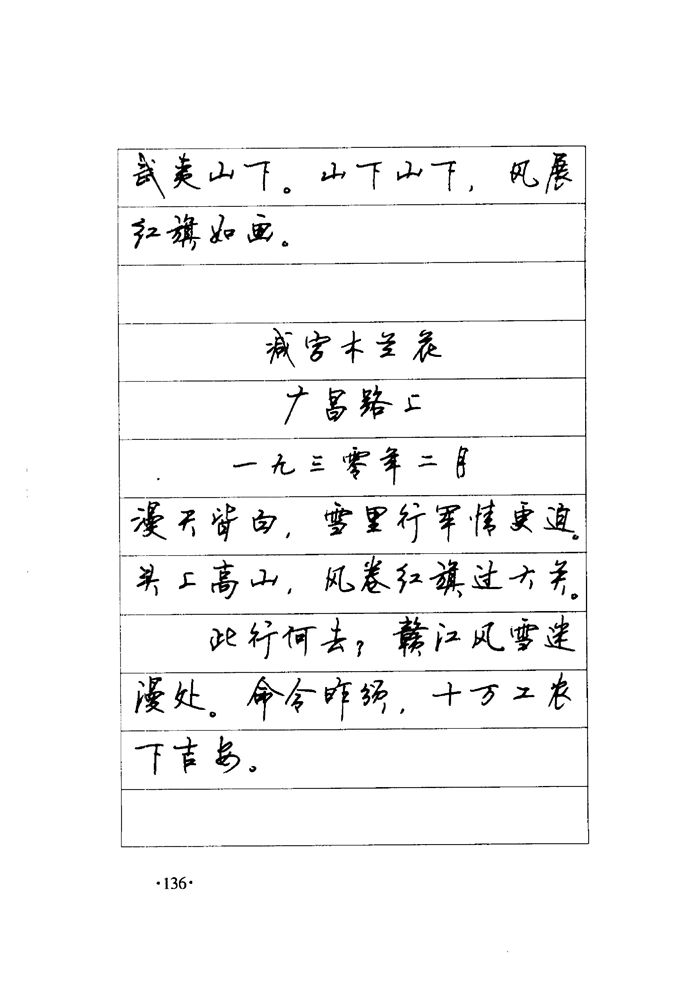 武夷山下。山下山下，风展
红旗如画。
减字木兰花
广昌路上
一九三零年二月
漫天皆白，雪里行军情更迫。
头上高山，风卷红旗过大关。
此行何去？赣江风雪迷
漫处。命令昨颁，十万工农
下吉安。
·136·